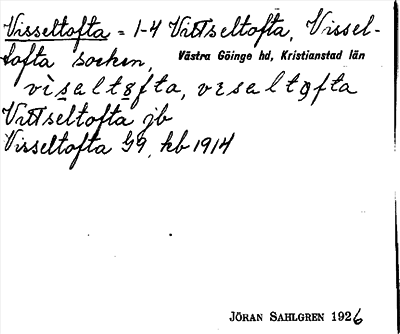 Visseltofta = 1-4 Vittseltofta, Vissel-
tofta socken, Västra Göinge hd, Kristianstad län
visaltofta, vesaltofta
Vittseltofta jb
Visseltofta G9, kb 1914
JÖRAN SAHLGREN 1926